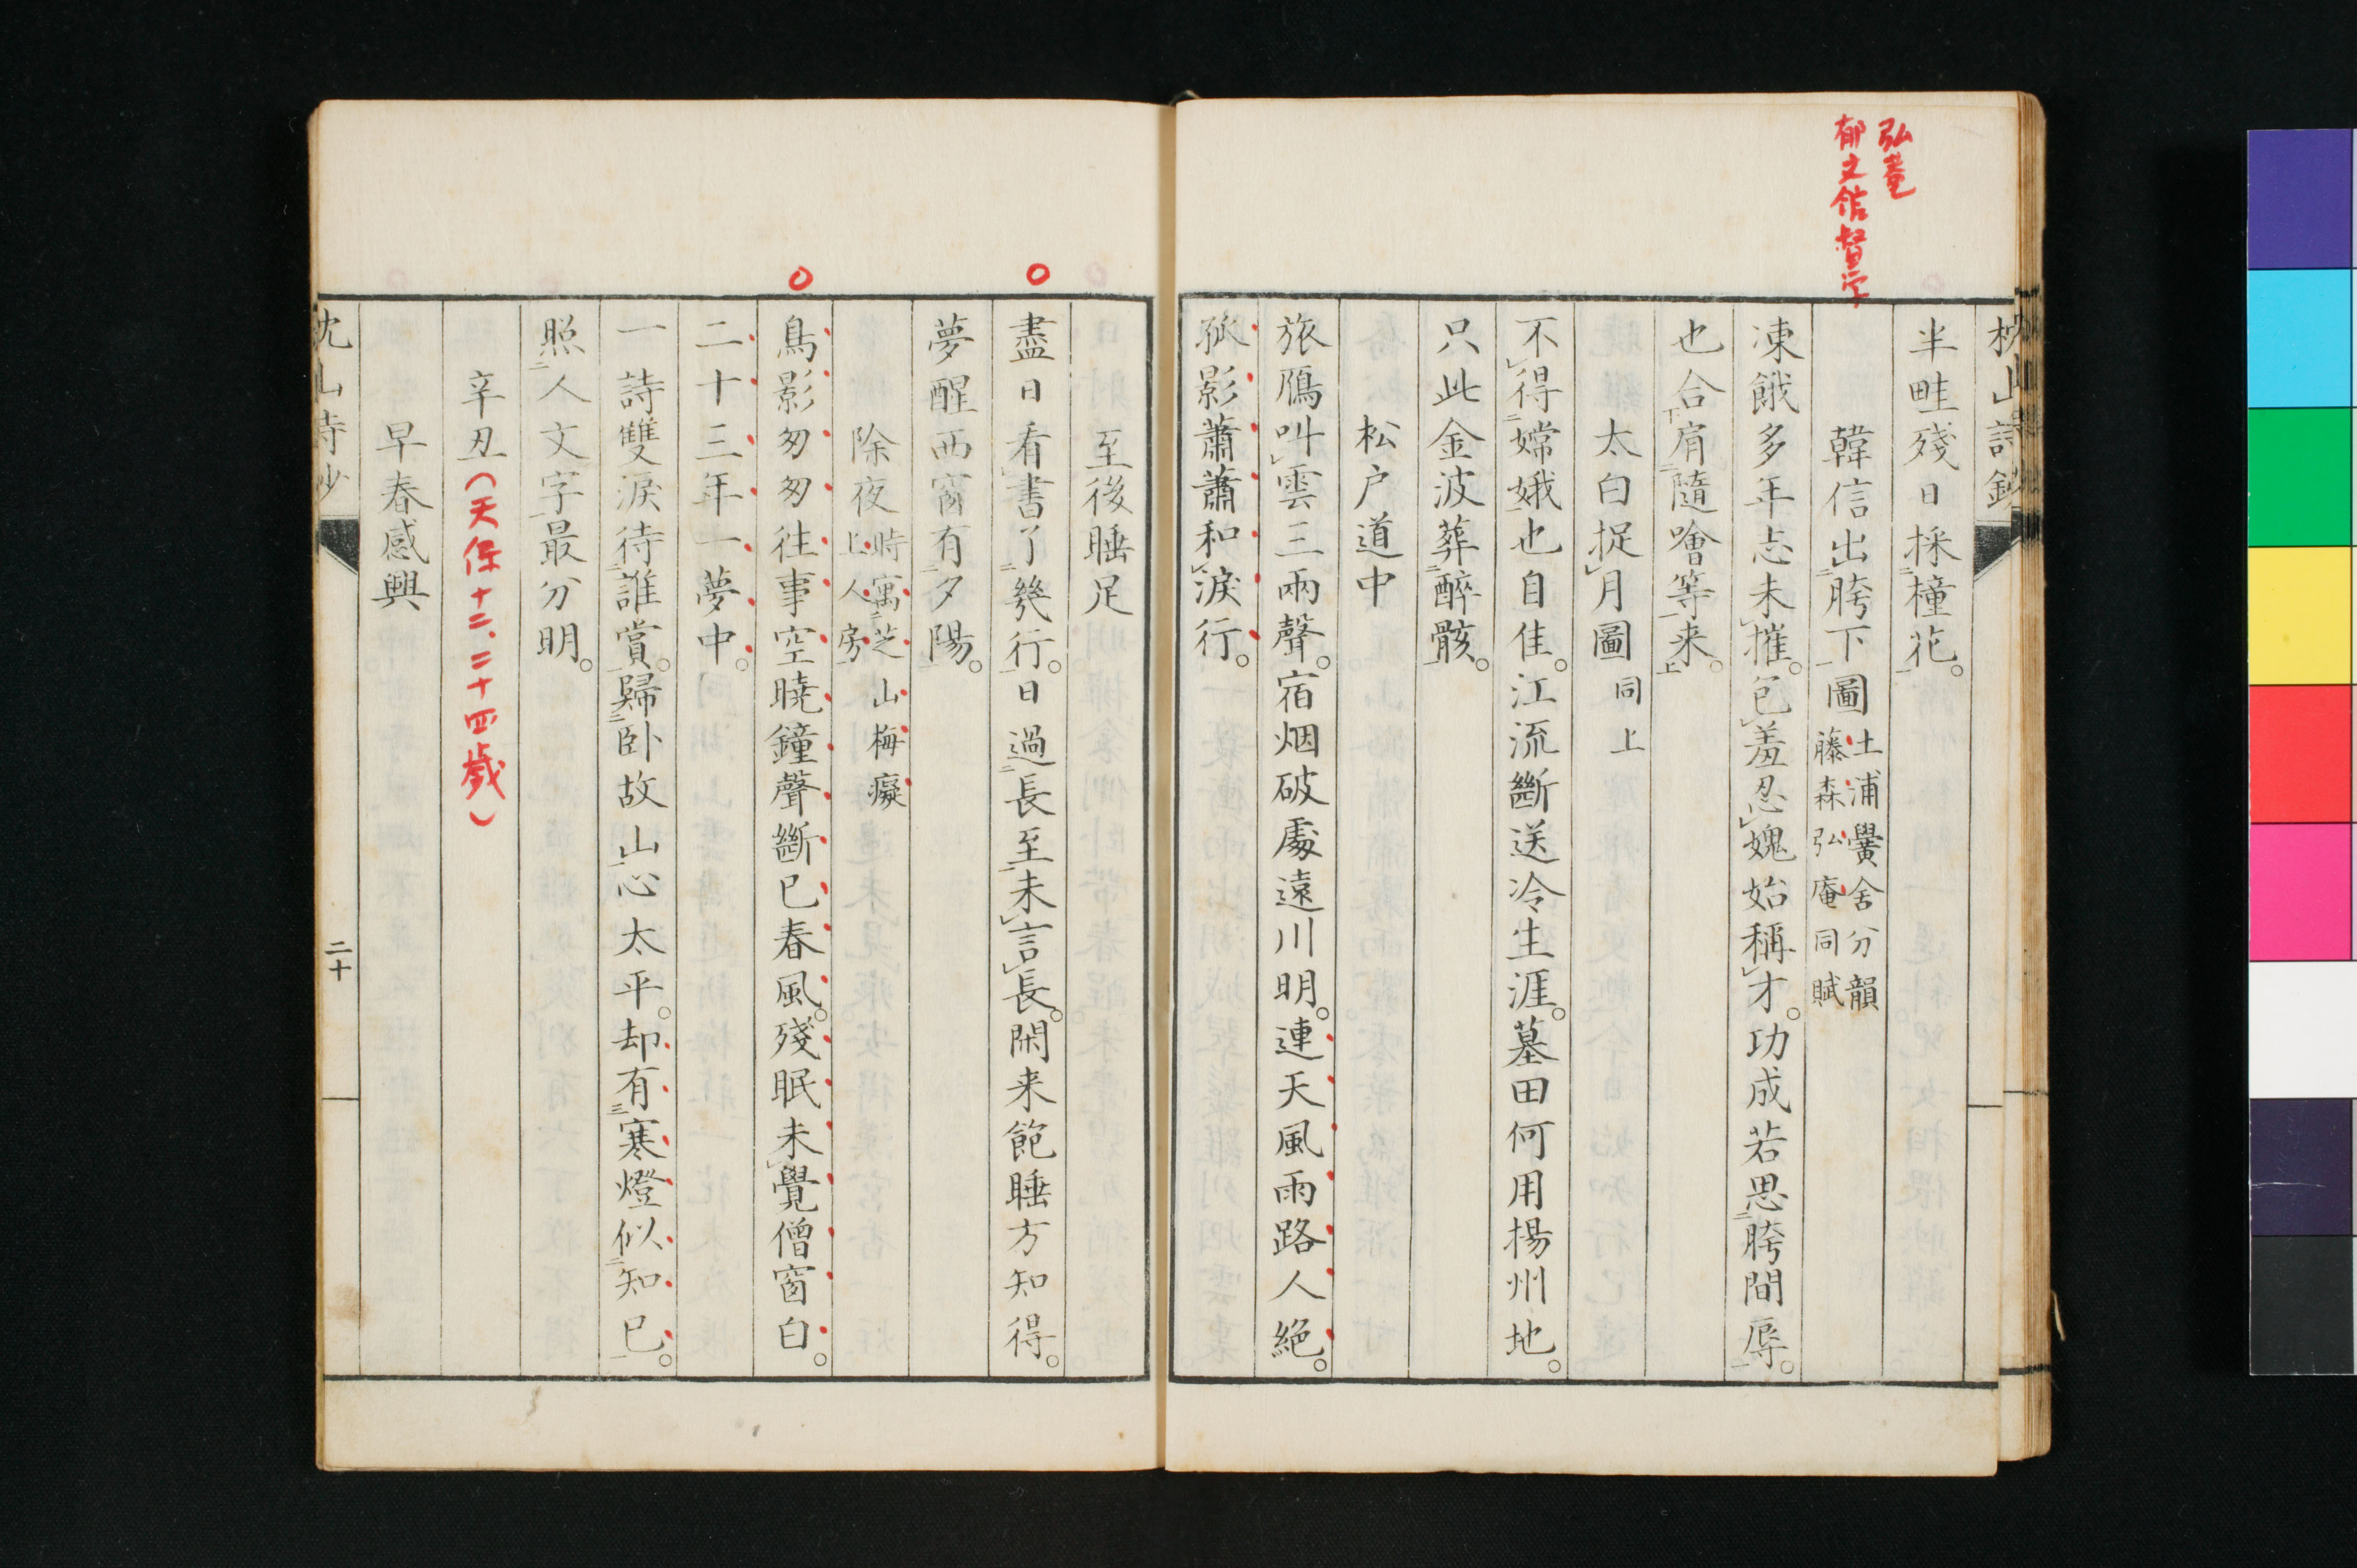 弘菴
郁文館督学
枕山詩鈔
半畦殘日採橦花。
韓信出胯下圖 土浦黌舍分韻藤森弘庵同賦
凍餓多年志未摧。包羞忍媿始稱才。功成若思胯間辱。
也合肩隨噲等来。
太白捉月圖 同上
不得嫦娥也自佳。江流斷送冷生涯。墓田何用楊州地。
只此金波葬醉骸。
松户道中
旅鴈叫雲三兩聲。宿烟破處遠川明。連天風雨路人絶。
孤影蕭蕭和淚行。
至後睡足
盡日看書了幾行。日過長至未言長。閑来飽睡方知得。
夢醒西窗有夕陽。
除夜 時寓芝山梅癡上人房
鳥影匆匆往事空。曉鐘聲斷已春風。殘眠未覺僧窗白。
二十三年一夢中。
一詩雙淚待誰賞。歸卧故山心太平。却有寒燈似知已。
照人文字最分明。
辛丑(天保十二、二十四歳)
早春感興
枕山詩鈔
二十